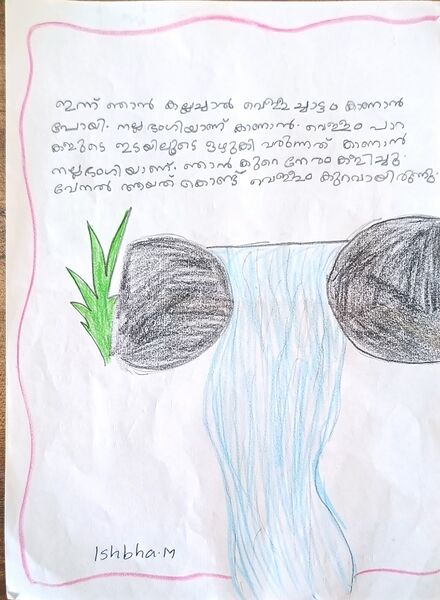 ഇന്ന് ഞാൻ കല്ലച്ചാൽ വെള്ള ച്ചാട്ടം കാണാൻ
പോയി. നല്ല ഭംഗിയാണ് കാണാൻ. വെള്ളം പാറ
കളുടെ ഇടയിലൂടെ ഒഴുകി വരുന്നത് കാണാൻ
നല്ല ഭംഗിയാണ്. ഞാൻ കുറെ നേരം കളിച്ചു.
വേനൽ ആയത് കൊണ്ട് വെള്ളം കുറവായിരുന്നു.
Ishbha.M